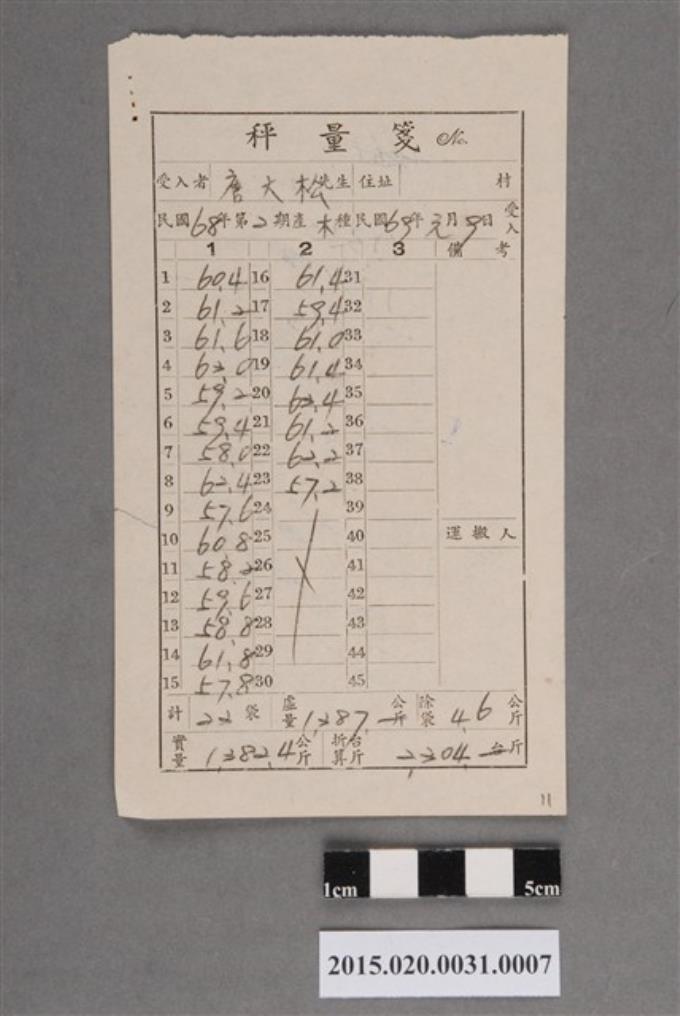 秤量箋 No.
受入者 唐大松 先生 住址 村
民國68年第2期產本種民國69年元月9日受入
1 2 3 備考
1 60.4 16 61.4 31
2 61.2 17 59.4 32
3 61.6 18 61.0 33
4 62.0 19 61.4 34
5 59.2 20 62.4 35
6 59.4 21 61.2 36
7 58.0 22 62.2 37
8 62.4 23 57.2 38
9 57.6 24 39
10 60.8 25 40 運搬人
11 58.2 26 41
12 59.6 27 42
13 58.8 28 43
14 61.8 29 44
15 57.8 30 45
計 22 袋 虛量 1,387, 公斤 除袋 4.6 公斤
實量 1,382.4 公斤 折算台斤 2,304, 台斤
11
1cm 5cm
2015.020.0031.0007